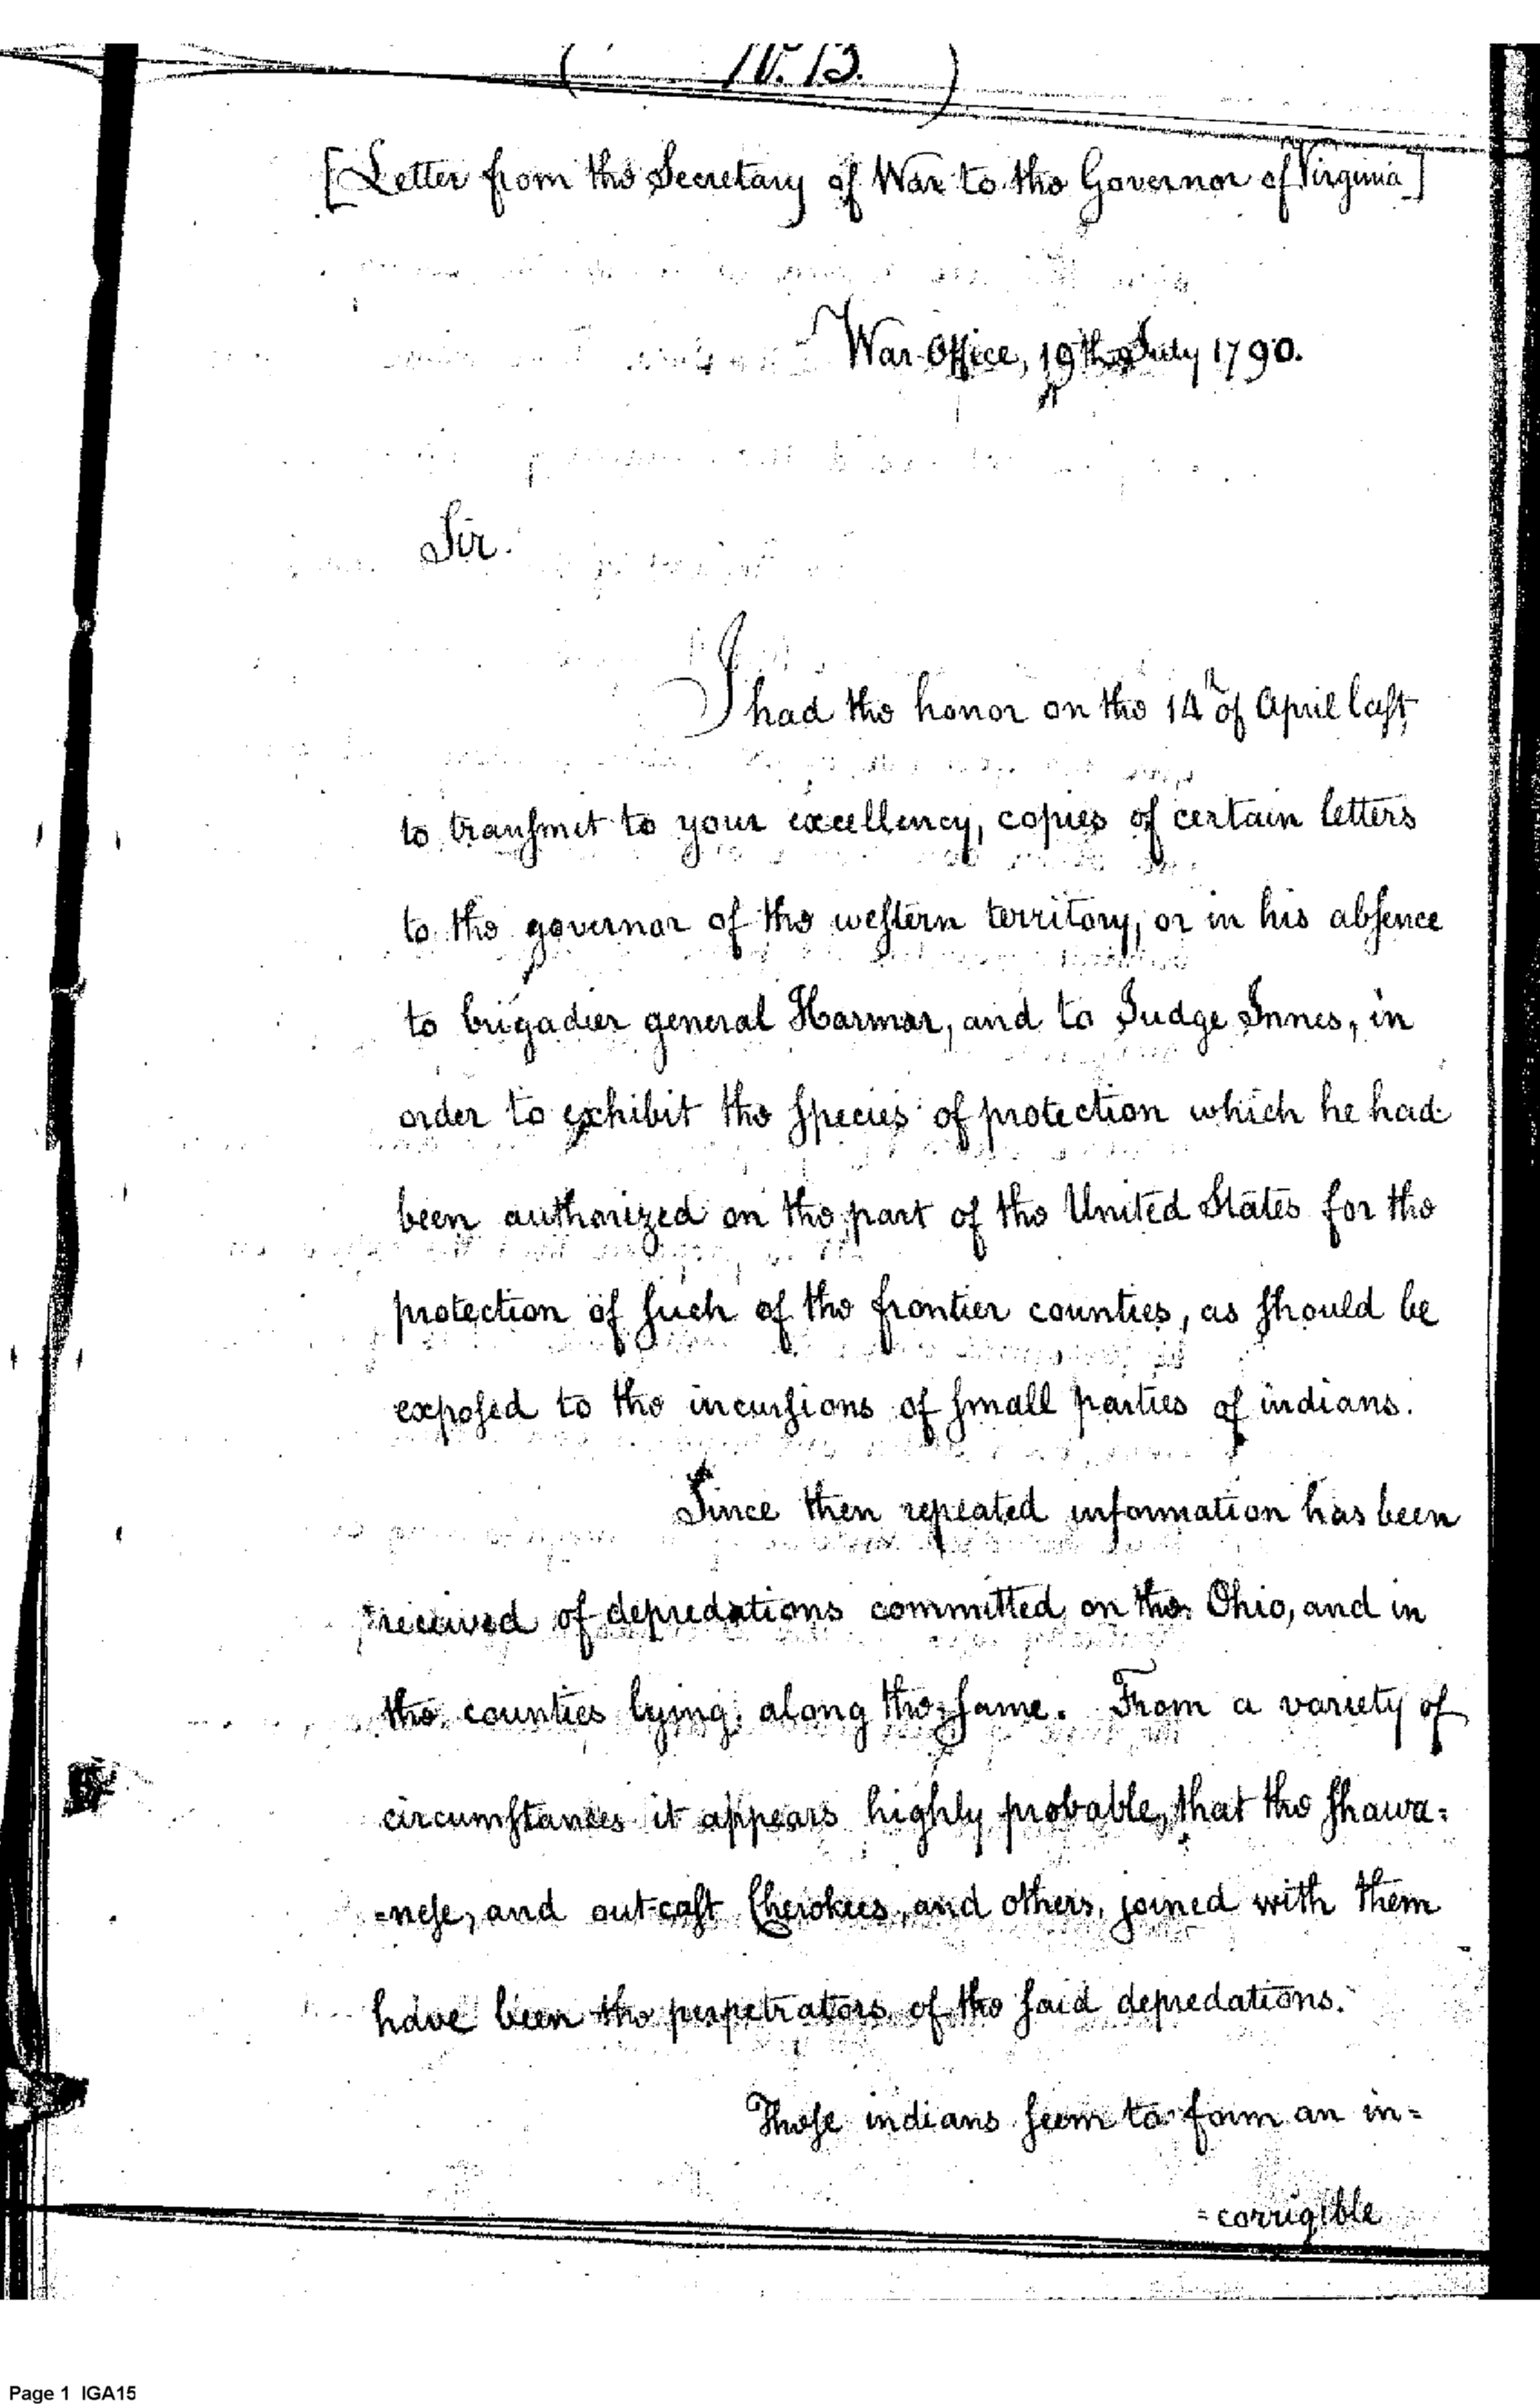 ( N.º 13. )
[Letter from the Secretary of War to the Governor of Virginia]
War Office, 19th July 1790.
Sir.
I had the honor on the 14th of April laſt,
to tranſmit to your excellency, copies of certain letters
to the governor of the weſtern territory, or in his abſence
to brigadier general Harmar, and to Judge Innes, in
order to exhibit the ſpecies of protection which he had
been authorized on the part of the United States for the
protection of ſuch of the frontier counties, as ſhould be
expoſed to the incurſions of ſmall parties of indians.
Since then repeated information has been
received of depredations committed on the Ohio, and in
the counties lying along the ſame. From a variety of
circumſtances it appears highly probable, that the ſhawa=
=neſe, and out-caſt Cherokees, and others, joined with them
have been the perpetrators of the ſaid depredations.
Thoſe indians ſeem to form an in=
=corrigible
Page 1 IGA15